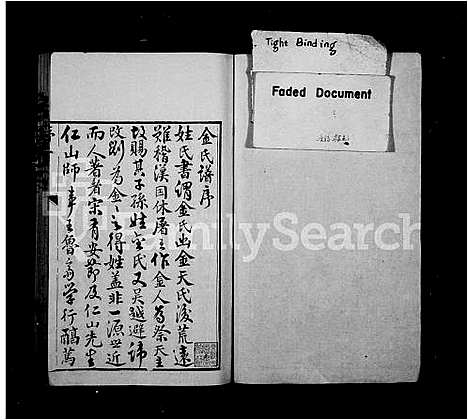 Tight Binding
Faded Document
金氏譜序
姓氏書謂金氏出金天氏後荒遠
難稽漢因休屠王作金人為祭天主
故賜其子孫姓金氏又吳越避諱
改劉為金之得姓蓋非一源世近
而人著者宋有安節及仁山先生
仁山師事王魯齋學行醇篤
FamilySearch